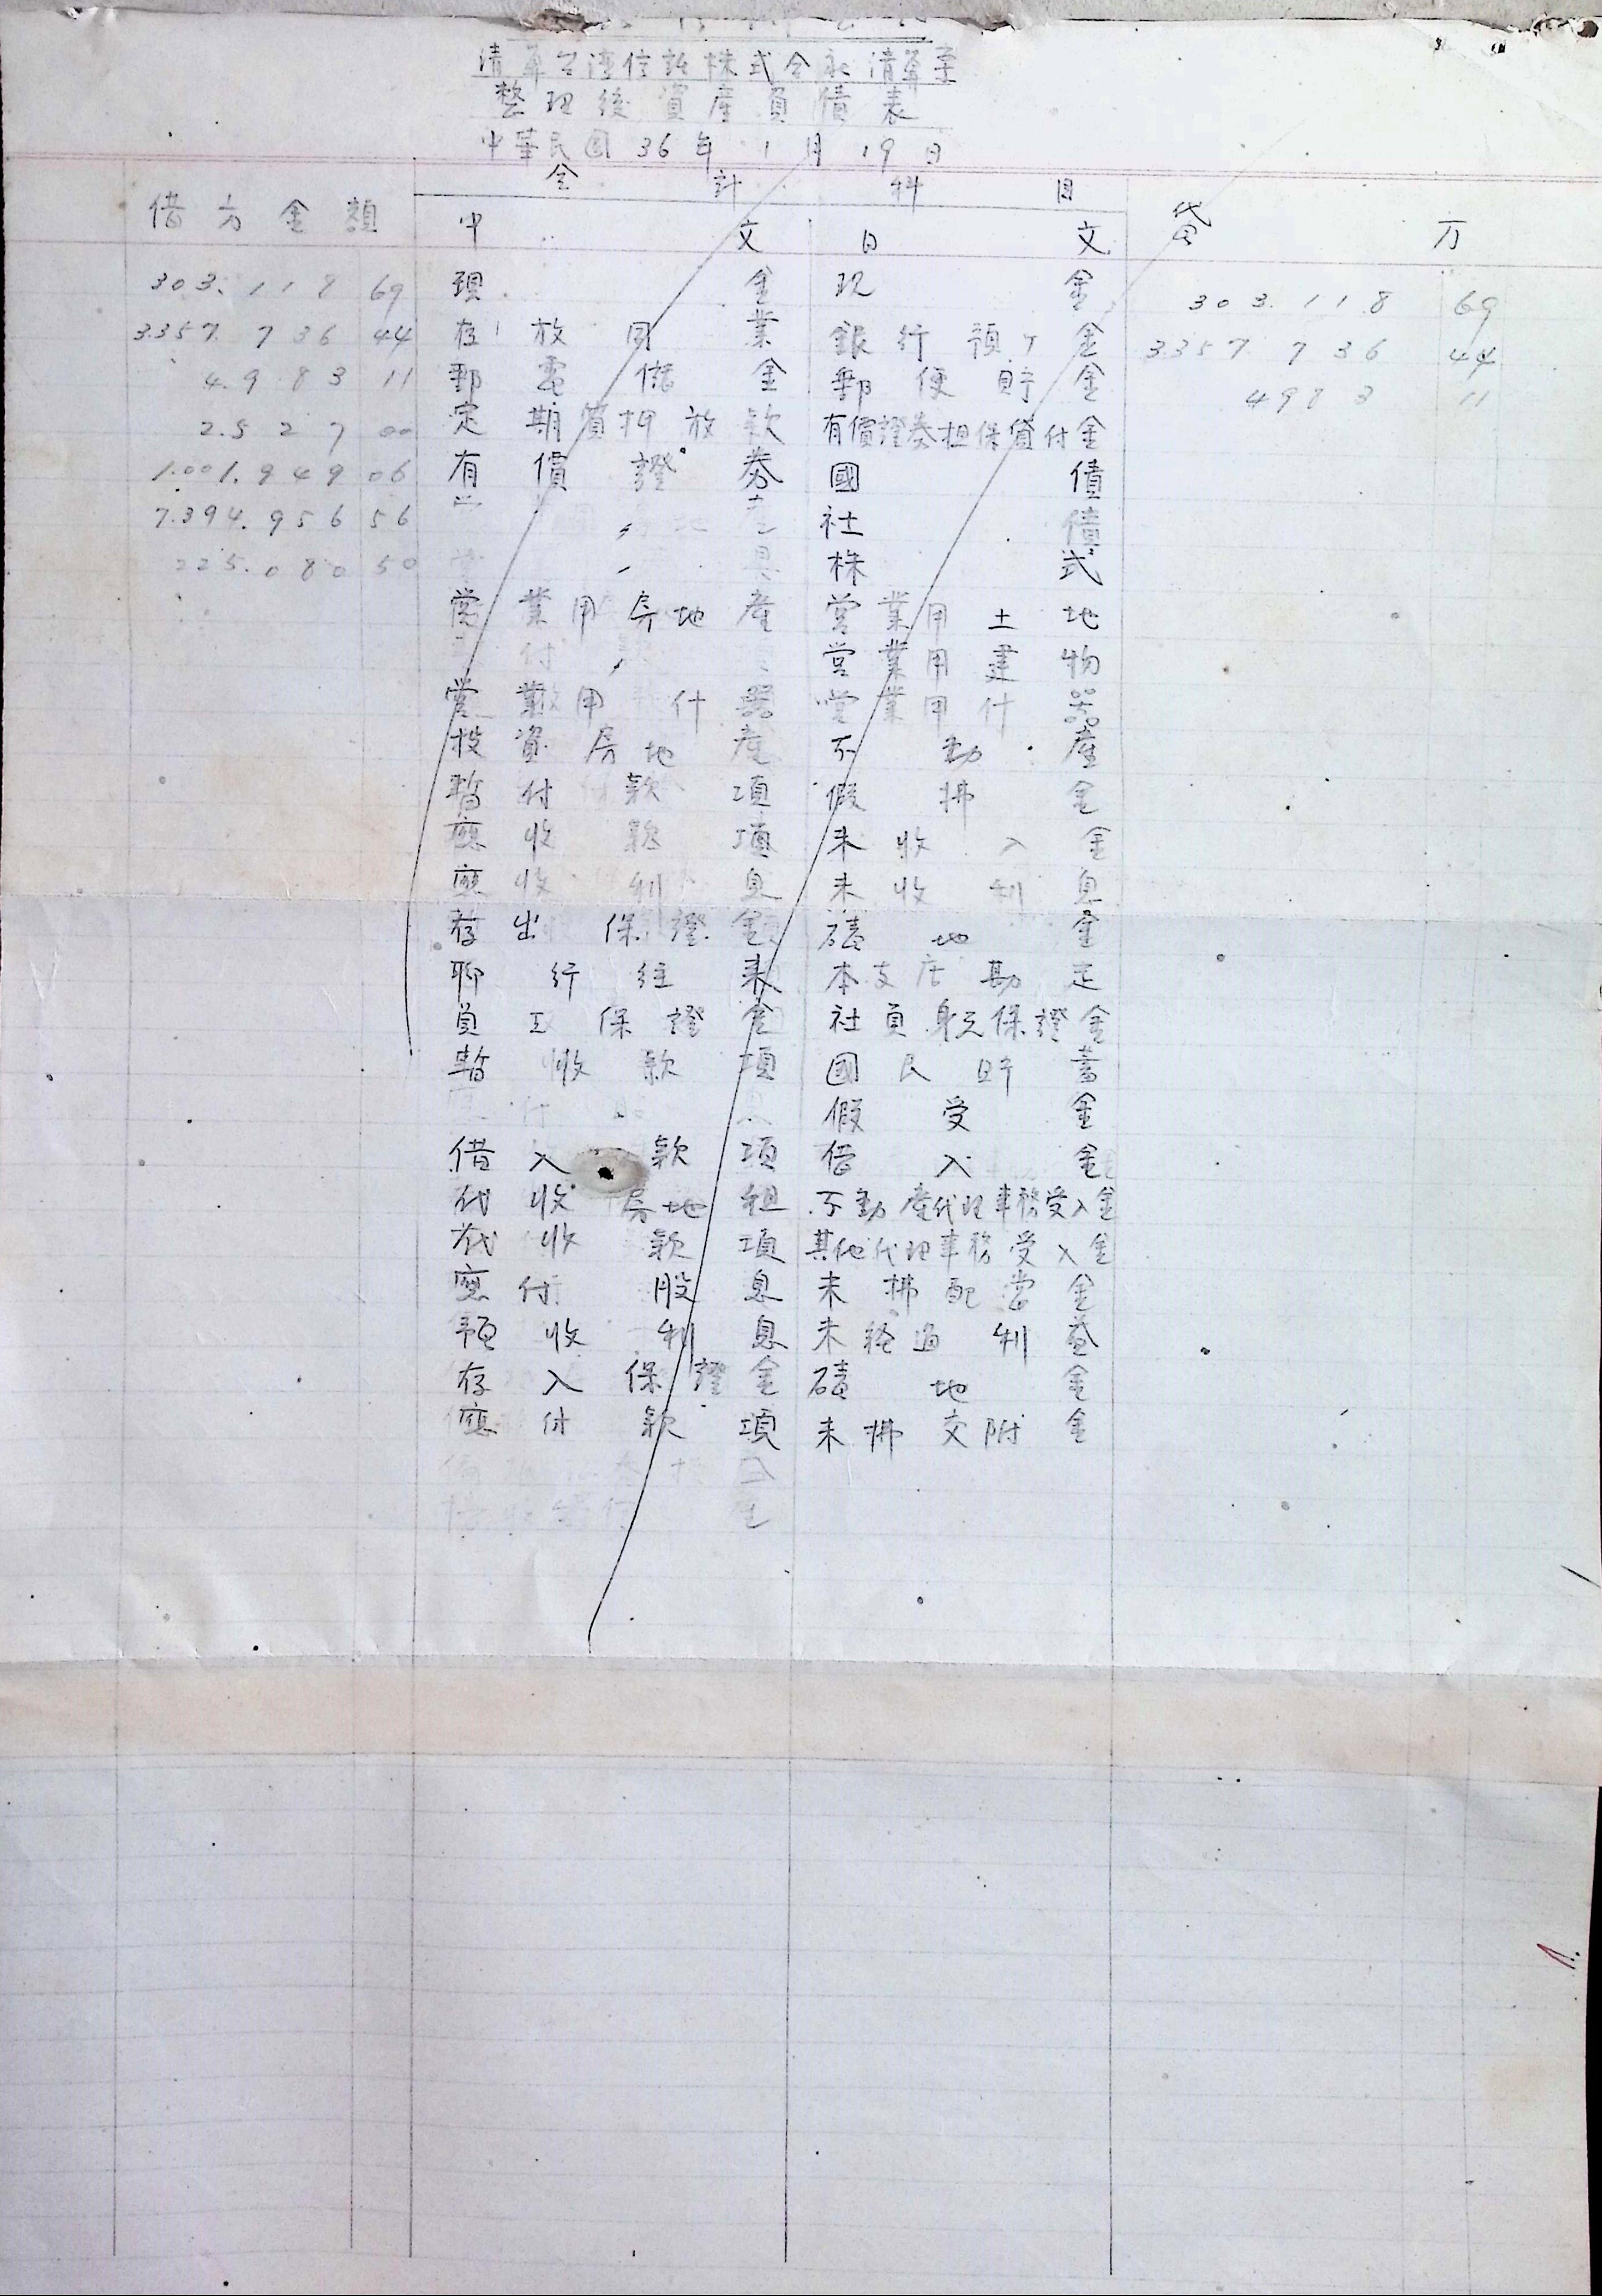 清算台湾信託株式会社清算案
整理後資産負債表
中華民国36年1月19日
会計科目
借方金額 中文 日文 貸方
303.118 69 現金 現金 303.118 69
3.357.736 44 存放同業 銀行預ケ金 3357736 44
4.983 11 郵電儲金 郵便貯金 4983 11
2.527 00 定期質押放款 有價證券担保貸付金
1.001.949 06 有價證券 國債
7.394.956 56 〃 社債
225.080 50 〃 株式
営業用房地産 営業用土地
〃 営業用建物
営業用什器 営業用什器
投資房地産 不動産
暫付款項 假拂金
應收款項 未收入金
應收利息 未收利息
存出保證金 磧地金
聯行往来 本支店勘定
員工保證金 社員身元保證金
暫收款項 國民貯蓄
假受金
借入款項 借入金
代收房地租 不動産代理事務受入金
代收款項 其他代理事務受入金
應付股息 未拂配当金
預收利息 未経過利益
存入保證金 磧地金
應付款項 未拂交附金